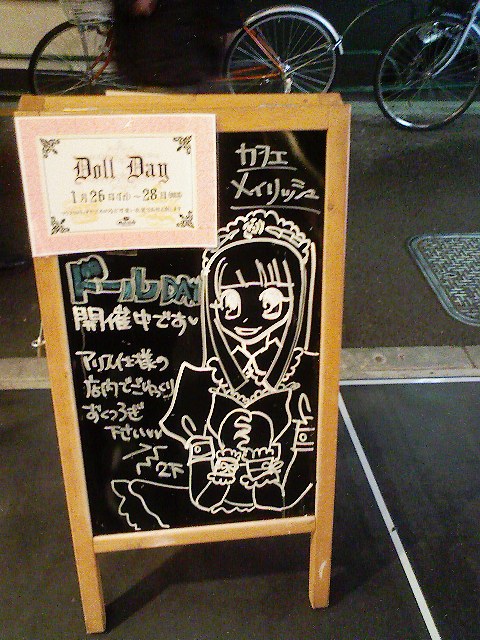 Doll Day
1月26日(水)~28日(金)
カフェ
メイリッシュ
ドールDAY
開催中です♥
アリス仕様の
店内でごゆっくり
おくつろぎ
下さいvv